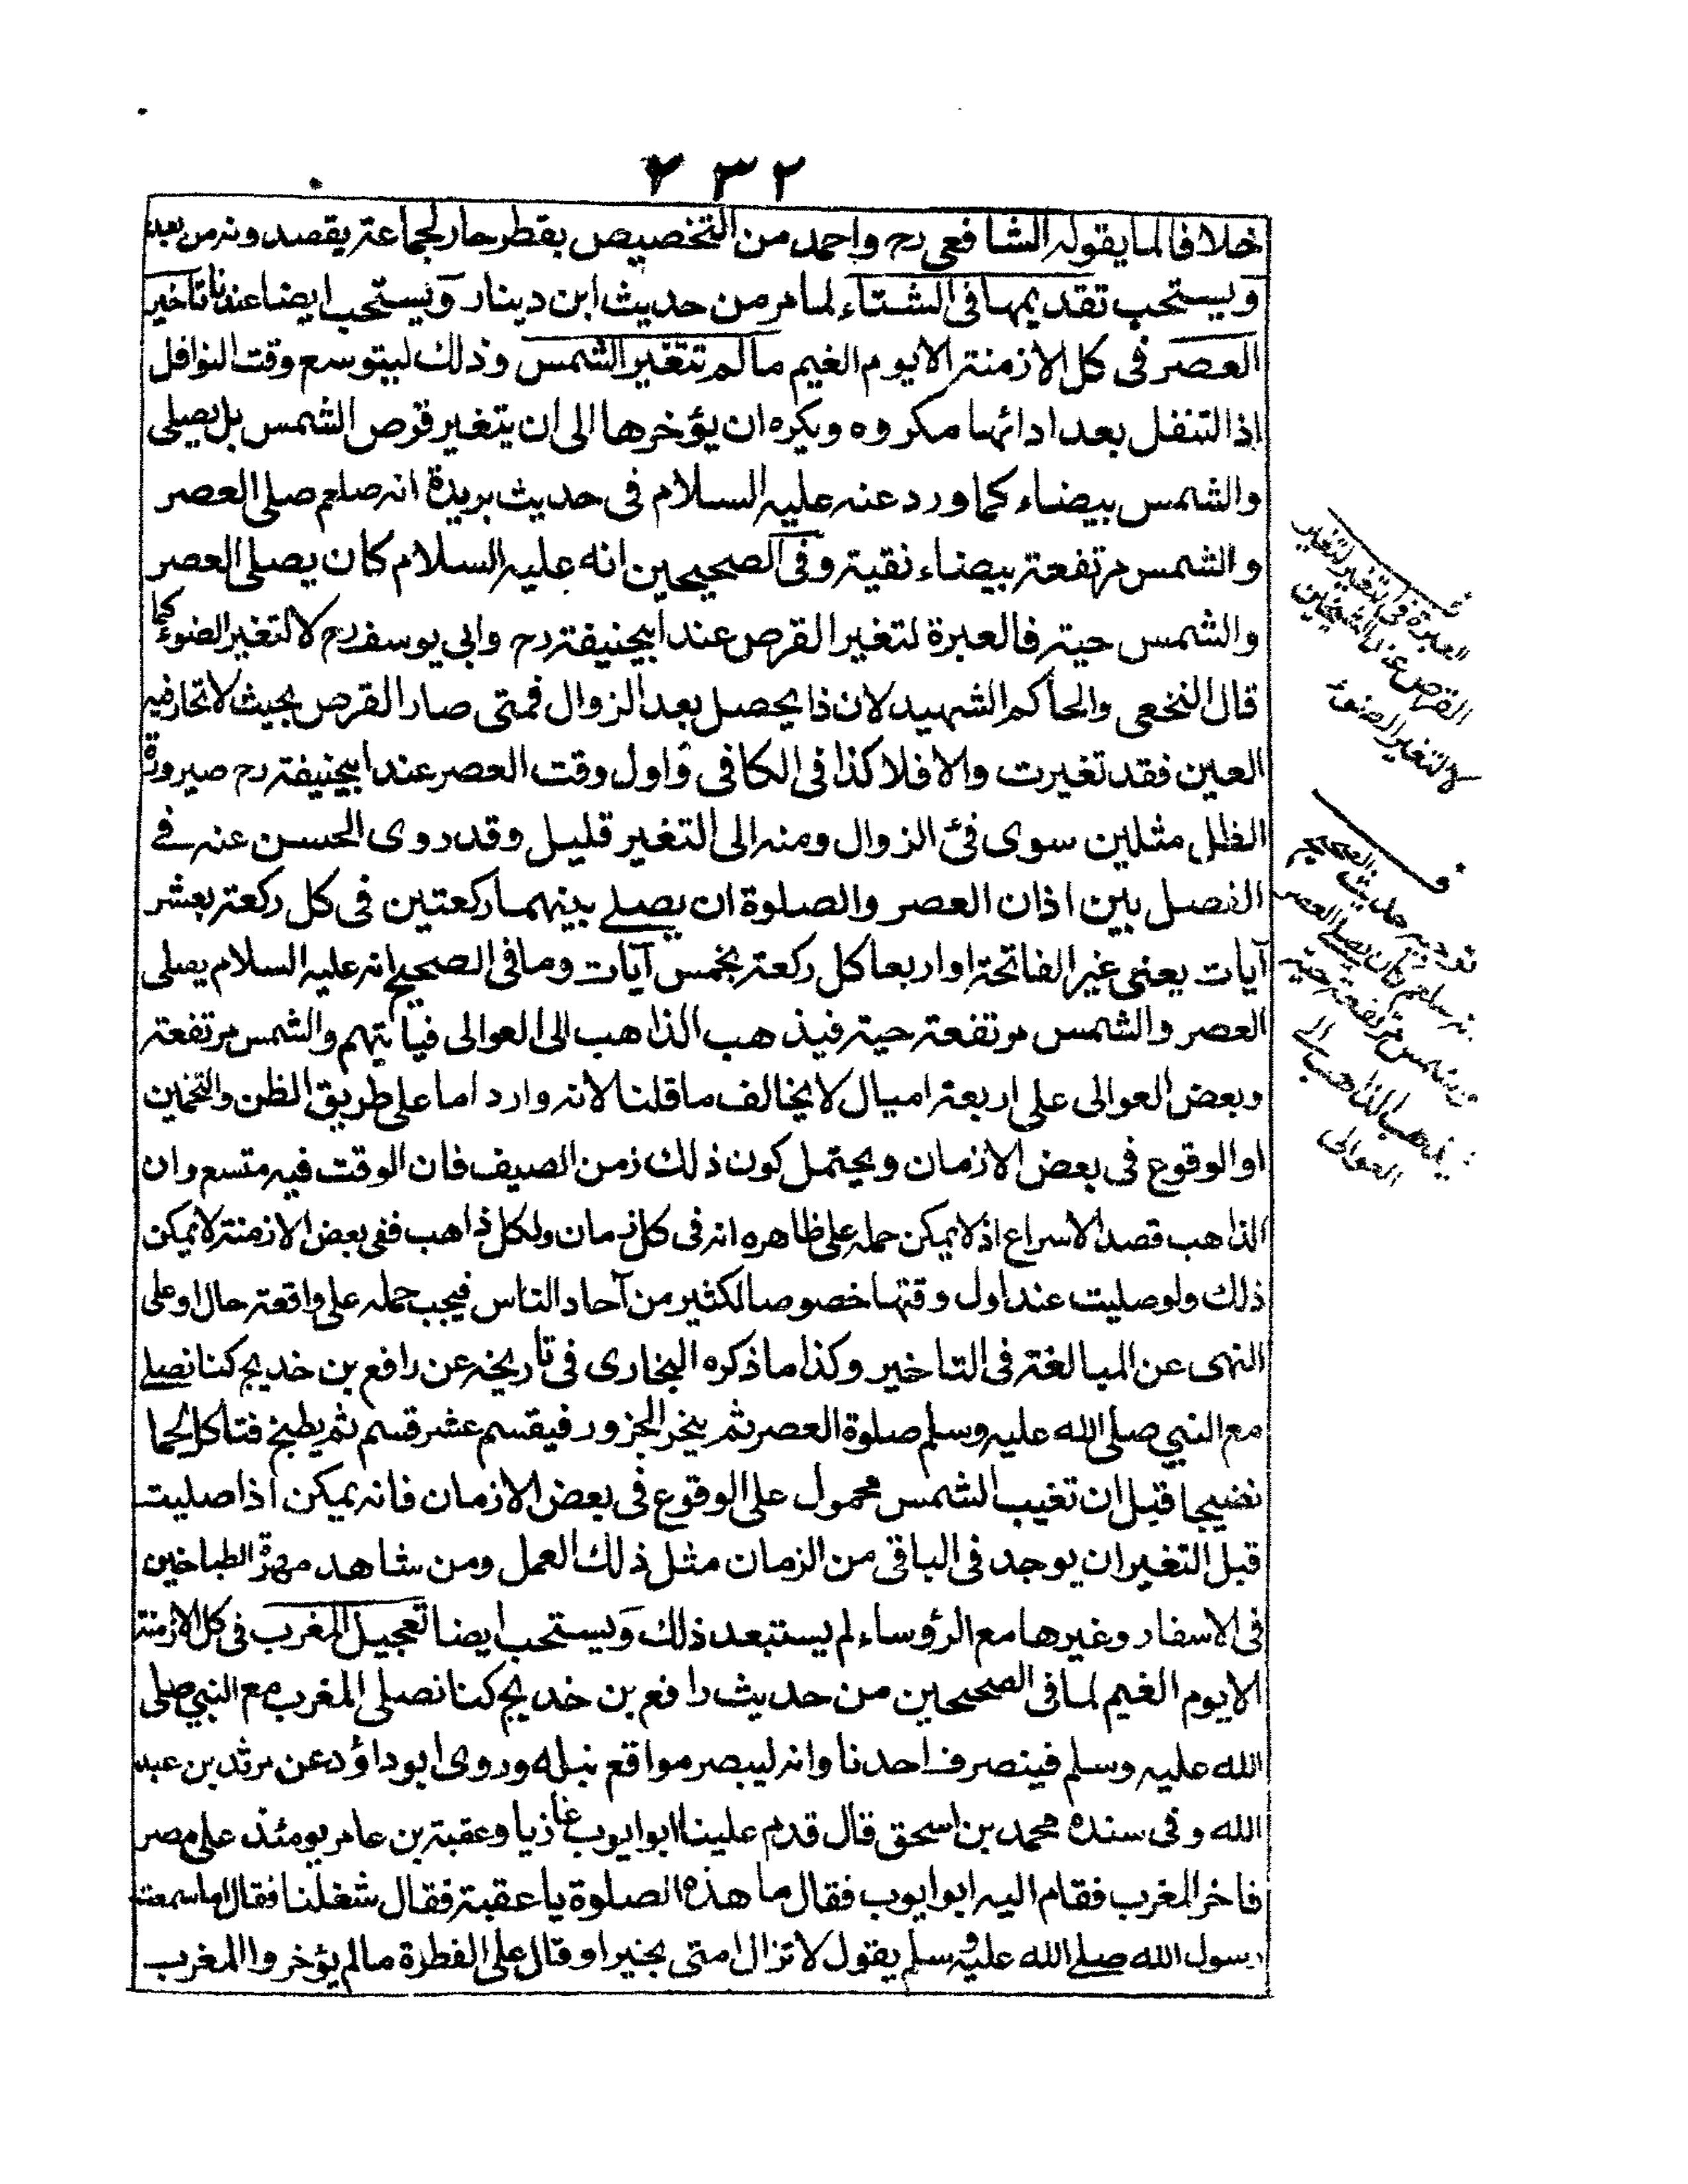 ٢٣٢
خلافا لما يقوله الشافعى رح واحمد من التخصيص بقطر حار لجماعة يقصدونه من بعيد
ويستحب تقديمها فى الشتاء لما مر من حديث ابن دينار ويستحب ايضا عندنا تاخير
العصر فى كل الازمنة الا يوم الغيم ما لم تتغير الشمس وذلك ليتوسع وقت النوافل
اذ التنفل بعد ادائها مكروه ويكره ان يؤخرها الى ان يتغير قرص الشمس بل يصلى
والشمس بيضاء كما ورد عنه عليه السلام فى حديث بريدة انه صلعم صلى العصر
والشمس مرتفعة بيضاء نقية وفى الصحيحين انه عليه السلام كان يصلى العصر
والشمس حية فالعبرة لتغير القرص عند ابيحنيفة رح وابى يوسف رح لا لتغير الضوء كما
قال النخعى والحاكم الشهيد لان ذا يحصل بعد الزوال فمتى صار القرص بحيث لا تحار فيه
العين فقد تغيرت والا فلا كذا فى الكافى واول وقت العصر عند ابيحنيفة رح صيرورة
الظل مثلين سوى فئ الزوال ومنه الى التغير قليل وقد روى الحسن عنه فے
الفصل بين اذان العصر والصلوة ان يصلے بينهما ركعتين فى كل ركعة بعشر
آيات يعنى غير الفاتحة او اربعا كل ركعة بخمس آيات وما فى الصحيح انه عليه السلام يصلى
العصر والشمس مرتفعة حية فيذهب الذاهب الى العوالى فياتيهم والشمس مرتفعة
وبعض العوالى على اربعة اميال لا يخالف ما قلنا لانه وارد اما على طريق الظن والتخمين
او الوقوع فى بعض الازمان ويحتمل كون ذلك زمن الصيف فان الوقت فيه متسع وان
الذاهب قصد الاسراع اذ لا يمكن حمله على ظاهره انه فى كل زمان ولكل ذاهب ففى بعض الازمنة لا يمكن
ذلك ولو صليت عند اول وقتها خصوصا لكثير من آحاد الناس فيجب حمله على واقعة حال او على
النهى عن المبالغة فى التاخير وكذا ما ذكره البخارى فى تاريخه عن رافع بن خديج كنا نصلے
مع النبي صلى الله عليه وسلم صلوة العصر ثم ينحر الجزور فيقسم عشر قسم ثم يطبخ فتاكل لحما
نضيجا قبل ان تغيب الشمس محمول على الوقوع فى بعض الازمان فانه يمكن اذا صليت
قبل التغير ان يوجد فى الباقى من الزمان مثل ذلك العمل ومن شاهد مهرة الطباخين
فى الاسفار وغيرها مع الرؤساء لم يستبعد ذلك ويستحب ايضا تعجيل المغرب فى كل الازمنة
الا يوم الغيم لما فى الصحيحين من حديث رافع بن خديج كنا نصلى المغرب مع النبي صلى
الله عليه وسلم فينصرف احدنا وانه ليبصر مواقع نبله وروى ابو داؤد عن مرثد بن عبد
الله وفى سنده محمد بن اسحق قال قدم علينا ابو ايوب غازيا وعقبة بن عامر يومئذ على مصر
فاخر المغرب فقام اليه ابو ايوب فقال ما هذه الصلوة يا عقبة فقال شغلنا فقال اما سمعت
رسول الله صلے الله عليه وسلم يقول لا تزال امتى بخير او قال على الفطرة ما لم يؤخروا المغرب
العبرة فى تغير لتغير
القرص عند الشيخين
لا لتغير الضوء
حديث الصحيح
صلعم كان يصلے العصر
مرتفعة حية
يذهب الذاهب الے
العوالى